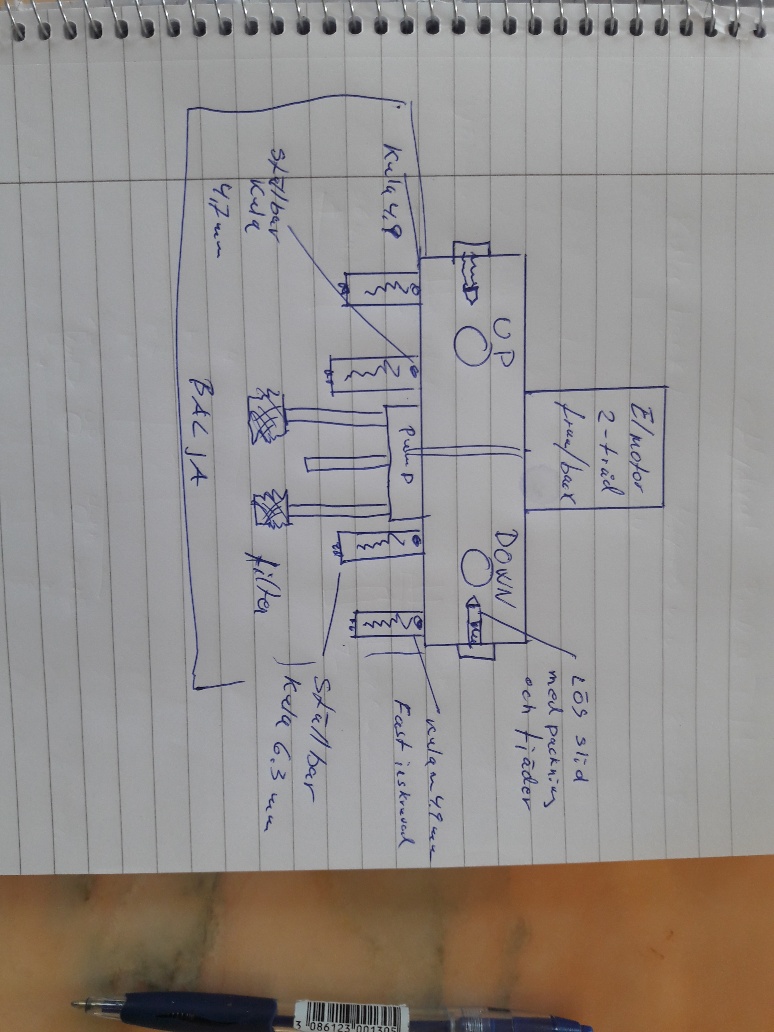 Elmotor
2-tråd
fram/back
UP
DOWN
LÖS slid
med packning
och fjäder
Pump
Kula 4.9
Ställbar
Kula
4,7 mm
kulan 4.9 mm
Fast inskruvad
Ställbar
Kula 6.3 mm
filter
BALJA
3 086123 001305